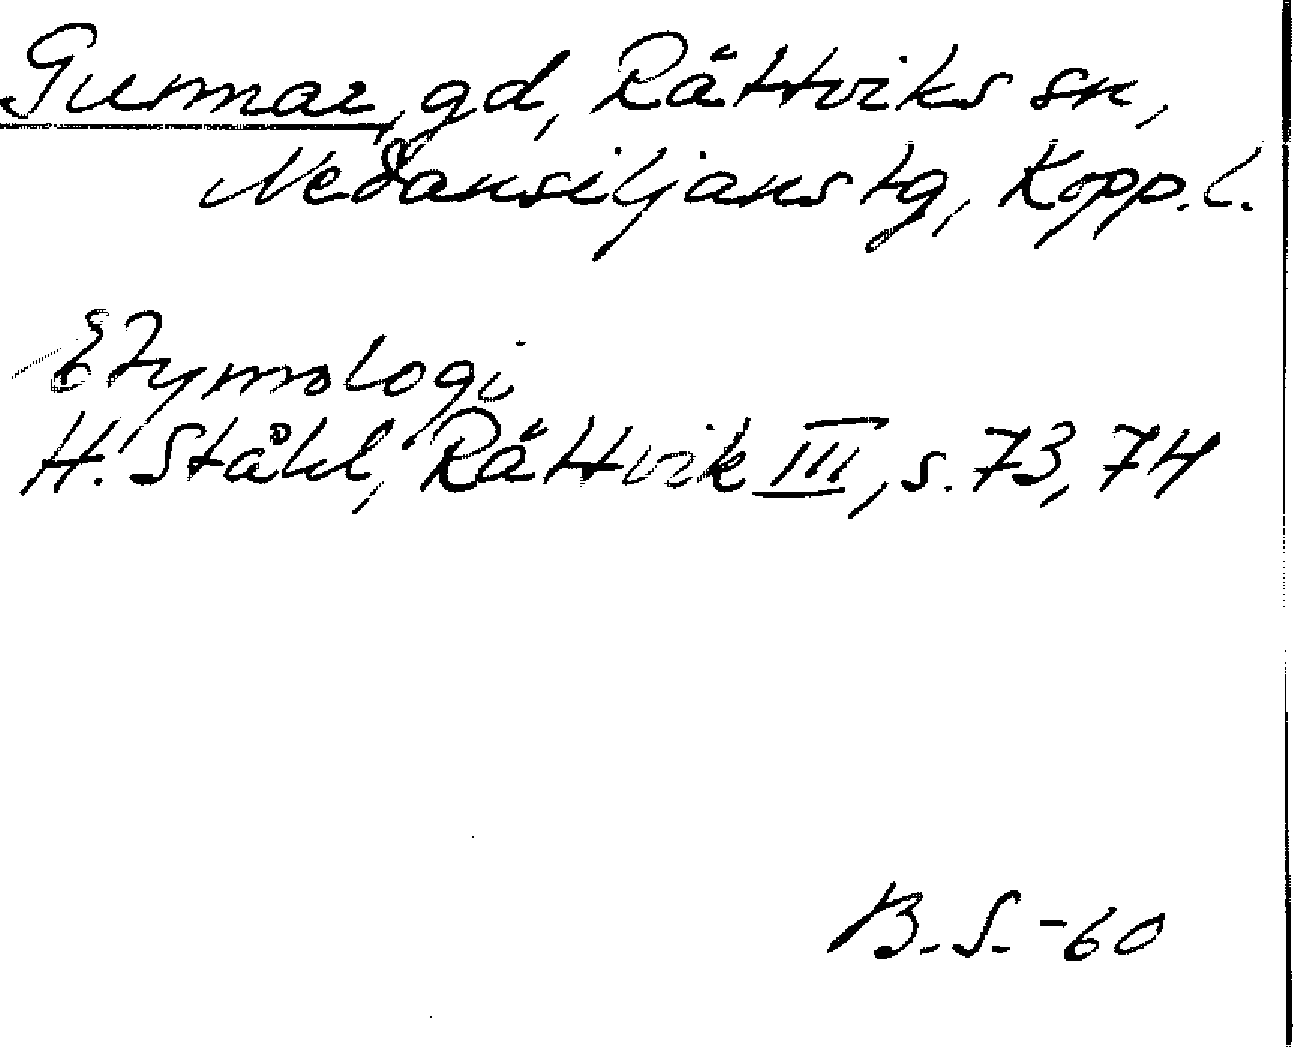 Gunnar, gd, Rättviks sn,
Nedansiljans tg, Kopp. l.
Etymologi
H. Ståhl, Rättvik III, s. 73, 74
B. S. -60